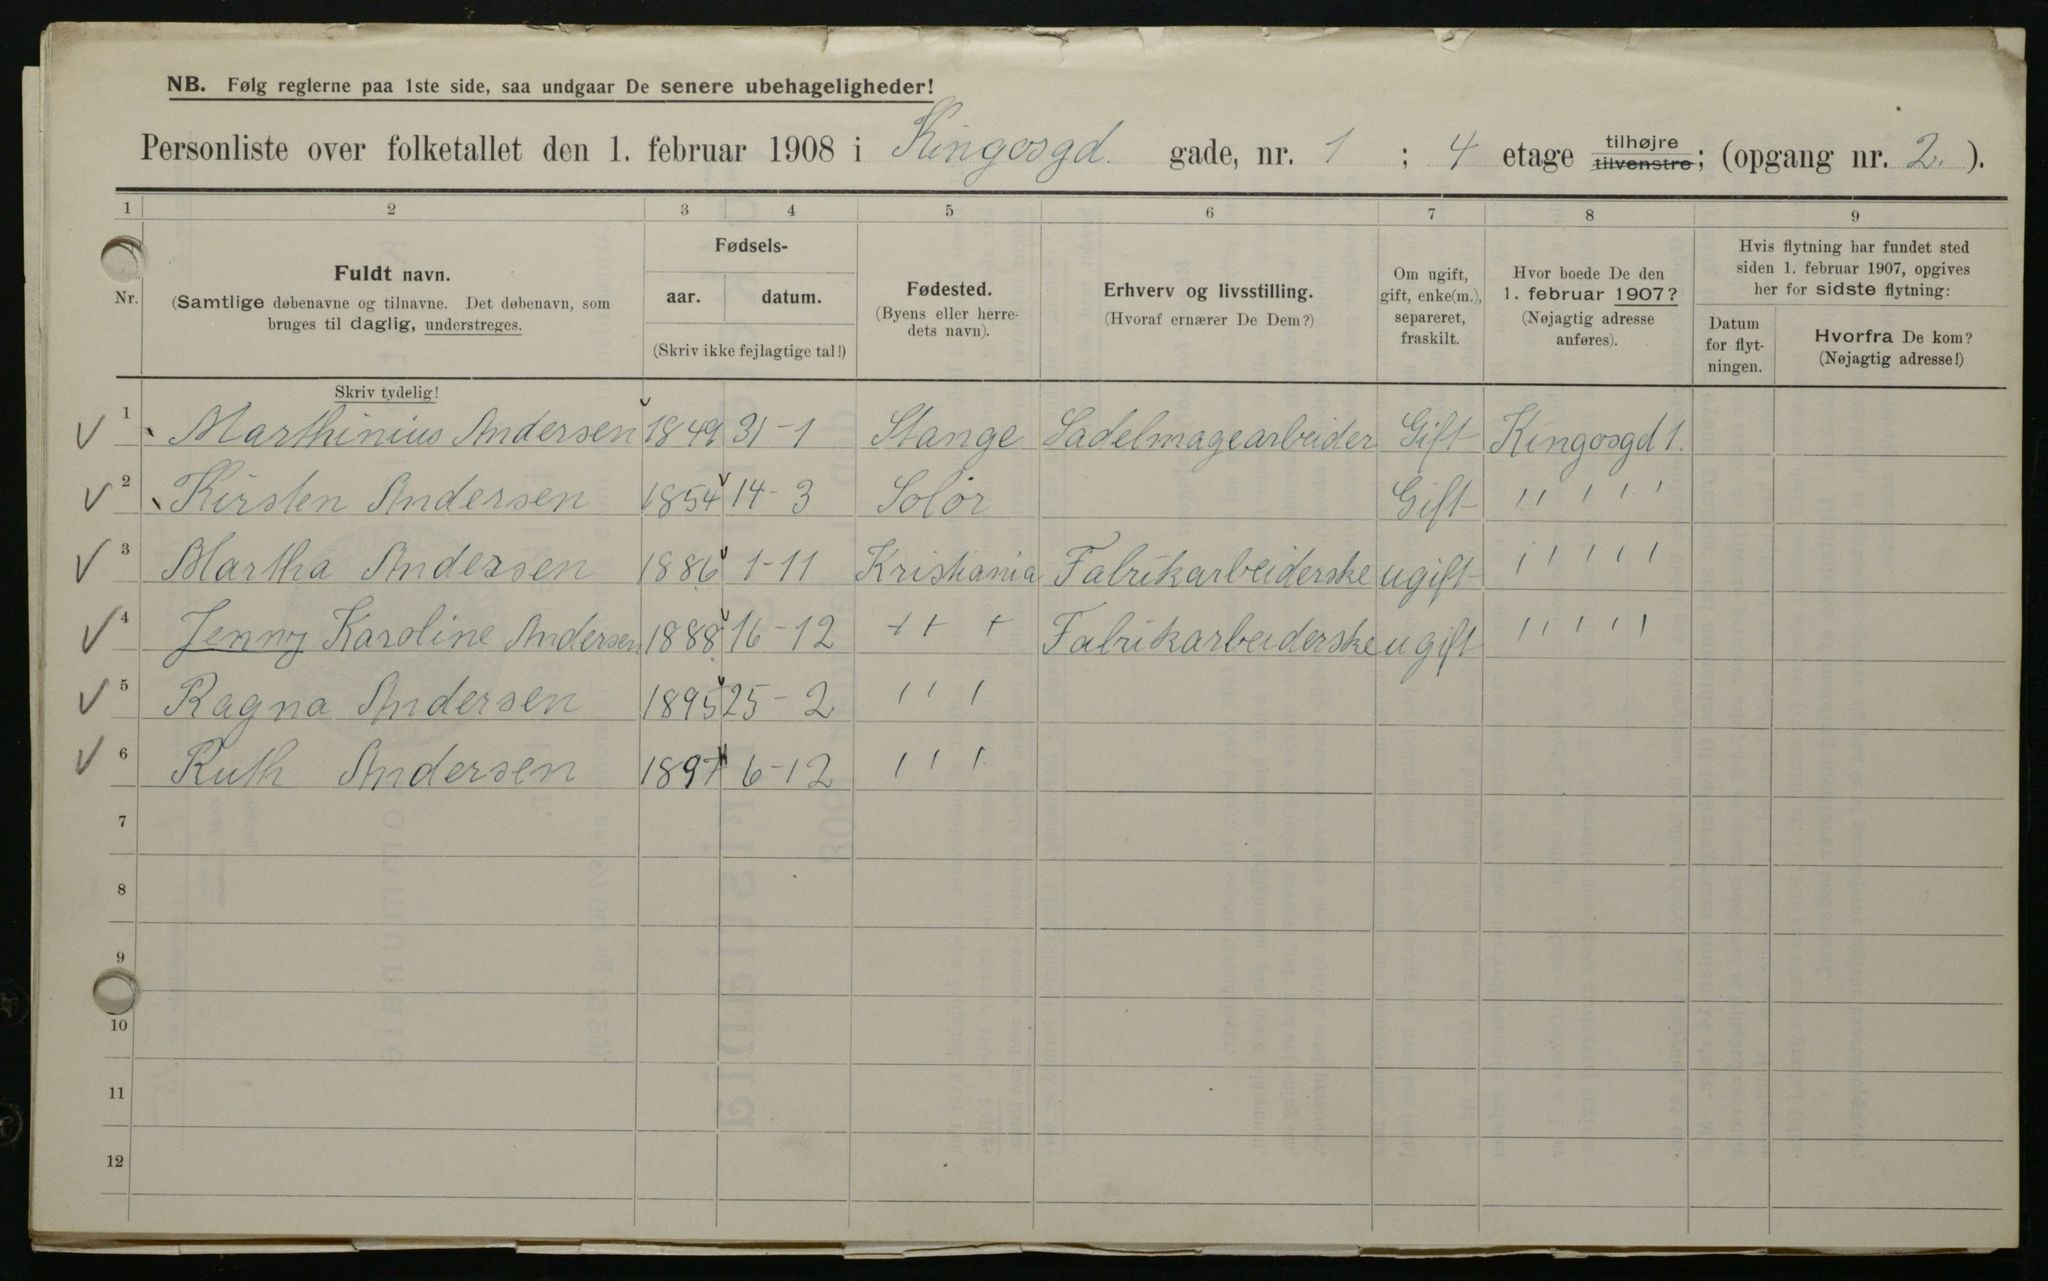 NB. Følg reglerne paa 1ste side, saa undgaar De senere ubehageligheder!
Personliste over folketallet den 1. februar 1908 i Kingosgd. gade, nr. 1 ; 4 etage tilhøjre tilvenstre; (opgang nr. 2. ).
1 2 3 4 5 6 7 8 9
Nr.
Fuldt navn.
(Samtlige døbenavne og tilnavne. Det døbenavn, som
bruges til daglig, understreges.
Fødsels-
aar. datum.
(Skriv ikke fejlagtige tal!)
Fødested.
(Byens eller herre-
dets navn).
Erhverv og livsstilling.
(Hvoraf ernærer De Dem?)
Om ugift,
gift, enke(m.),
separeret,
fraskilt.
Hvor boede De den
1. februar 1907?
(Nøjagtig adresse
anføres).
Hvis flytning har fundet sted
siden 1. februar 1907, opgives
her for sidste flytning:
Datum
for flyt-
ningen.
Hvorfra De kom?
(Nøjagtig adresse!)
Skriv tydelig!
1 Marthinius Andersen 1849 31-1 Stange Sadelmagearbeider Gift Kingosgd 1.
2 Kirsten Andersen 1854 14-3 Solør Gift " " " " "
3 Martha Andersen 1886 1-11 Kristiania Fabrikarbeiderske ugift " " " " "
4 Jenny Karoline Andersen 1888 16-12 + + + Fabrikarbeiderske ugift " " " " "
5 Ragna Andersen 1895 25-2 " " "
6 Ruth Andersen 1897 6-12 " " "
7
8
9
10
11
12